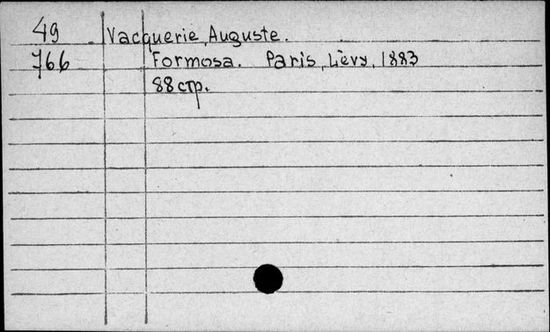 49 Vacquerie, Auguste.
766 Formosa. Paris, Lèvy, 1883
88 стр.